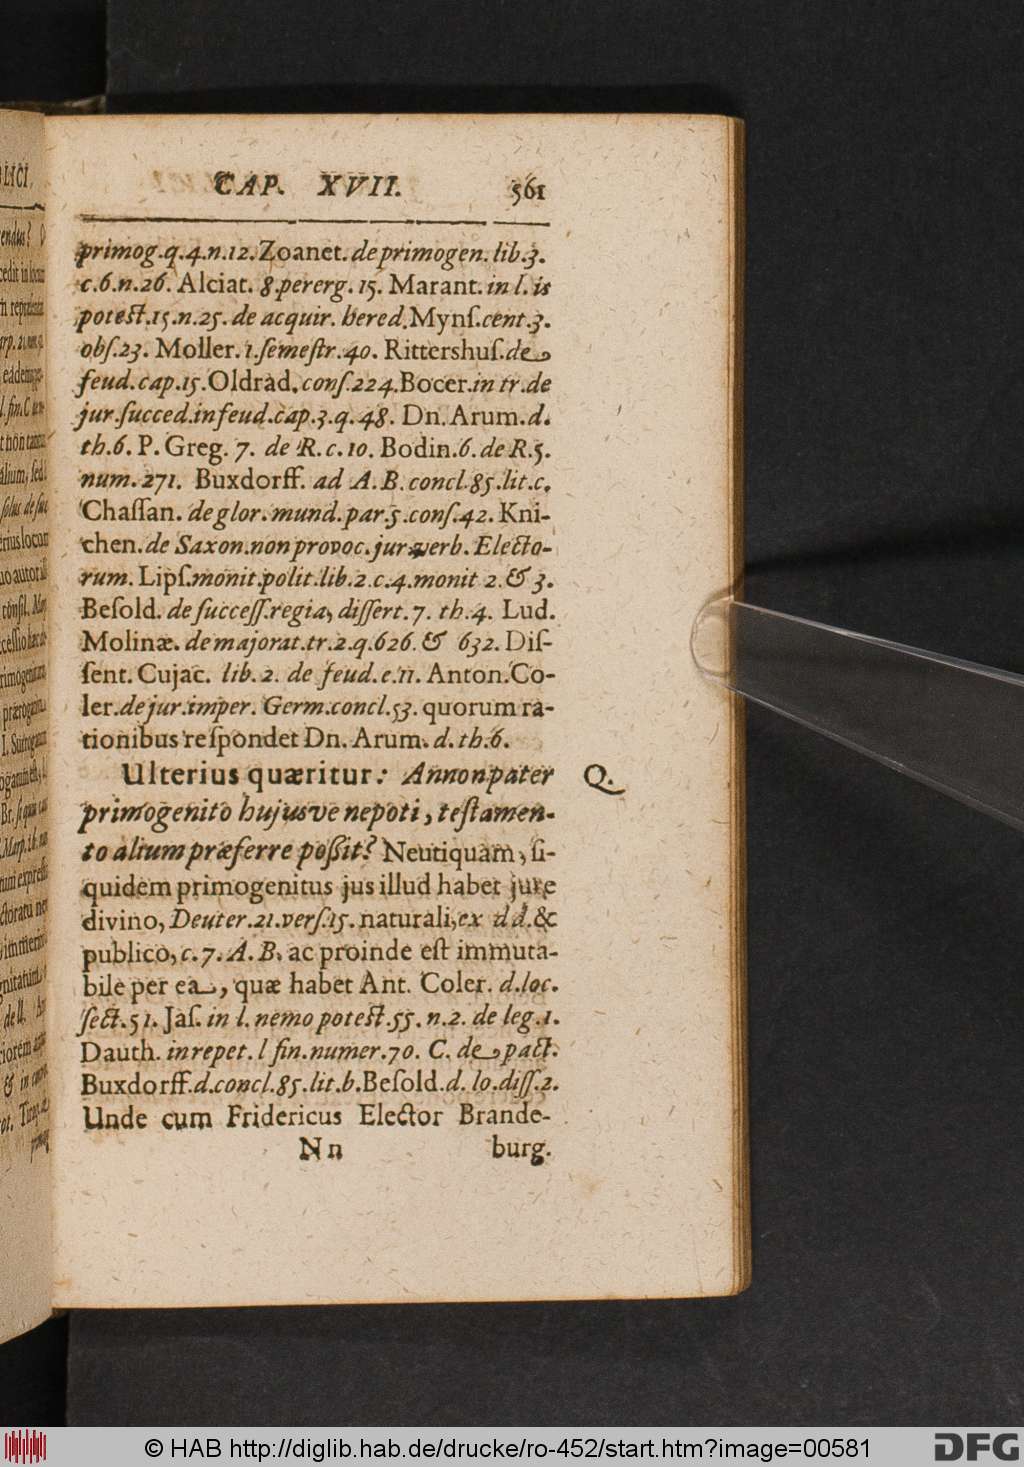 CAP. XVII. 561
primog.q.4.n.12. Zoanet. de primogen. lib.3.
c.6.n.26. Alciat. 8. pererg. 15. Marant. in l. is
potest.15.n.25. de acquir. hered. Mynſ. cent.3.
obſ.23. Moller. 1. ſemeſtr.40. Rittershuſ. de
feud. cap.15. Oldrad. conſ.224. Bocer. in tr. de
jur. ſucced. in feud. cap.3.q.48. Dn. Arum. d.
th.6. P. Greg. 7. de R. c.10. Bodin. 6. de R.5.
num.271. Buxdorff. ad A. B. concl.85. lit.c.
Chaſſan. de glor. mund. par.5. conſ.42. Kni-
chen. de Saxon. non provoc. jur. verb. Electo-
rum. Lipſ. monit. polit. lib.2.c.4. monit 2. & 3.
Beſold. de ſucceſſ. regia, diſſert.7. th.4. Lud.
Molinæ. de majorat. tr.2.q.626. & 632. Diſ-
ſent. Cujac. lib. 2. de feud. e.11. Anton. Co-
ler. de jur. imper. Germ. concl.53. quorum ra-
tionibus reſpondet Dn. Arum. d. th.6.
Ulterius quæritur: Annon pater Q.
primogenito hujusve nepoti, teſtamen-
to alium præferre poßit? Neutiquam, ſi-
quidem primogenitus jus illud habet jure
divino, Deuter.21. verſ.15. naturali, ex dd. &
publico, c.7. A. B. ac proinde eſt immuta-
bile per ea, quæ habet Ant. Coler. d. loc.
ſect.51. Jaſ. in l. nemo poteſt.55. n.2. de leg.1.
Dauth. in repet. l fin. numer.70. C. de pact.
Buxdorff. d. concl.85. lit.b. Beſold. d. lo. diſſ.2.
Unde cum Fridericus Elector Brande-
Nn burg.
© HAB http://diglib.hab.de/drucke/ro-452/start.htm?image=00581
DFG